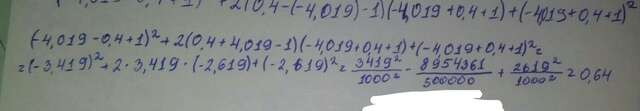 + 2(0,4-(-4,019)-1)(-4,019+0,4+1)+(-4,019+0,4+1)²
(-4,019-0,4+1)²+2(0,4+4,019-1)(-4,019+0,4+1)+(-4,019+0,4+1)²=
=(-3,419)²+2·3,419·(-2,619)+(-2,619)²= 3419²/1000² - 8954361/500000 + 2619²/1000² = 0,64